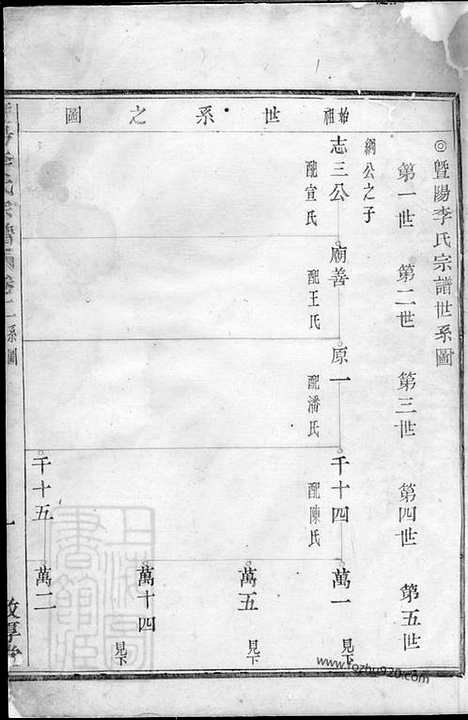 ◎暨陽李氏宗譜世系圖
第一世 第二世 第三世 第四世 第五世
始祖世系之圖
綱公之子
志三公 配宣氏
廟善 配王氏
原一 配潘氏
千十四 配陳氏
千十五
萬一 見下
萬五 見下
萬十四 見下
萬二
系圖
一
上海圖書館藏
www.fozhu920.com